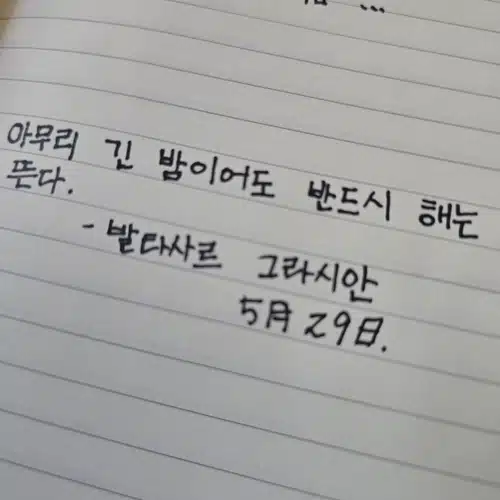 ...
아무리 긴 밤이어도 반드시 해는
뜬다.
- 발타사르 그라시안
5月 29日.